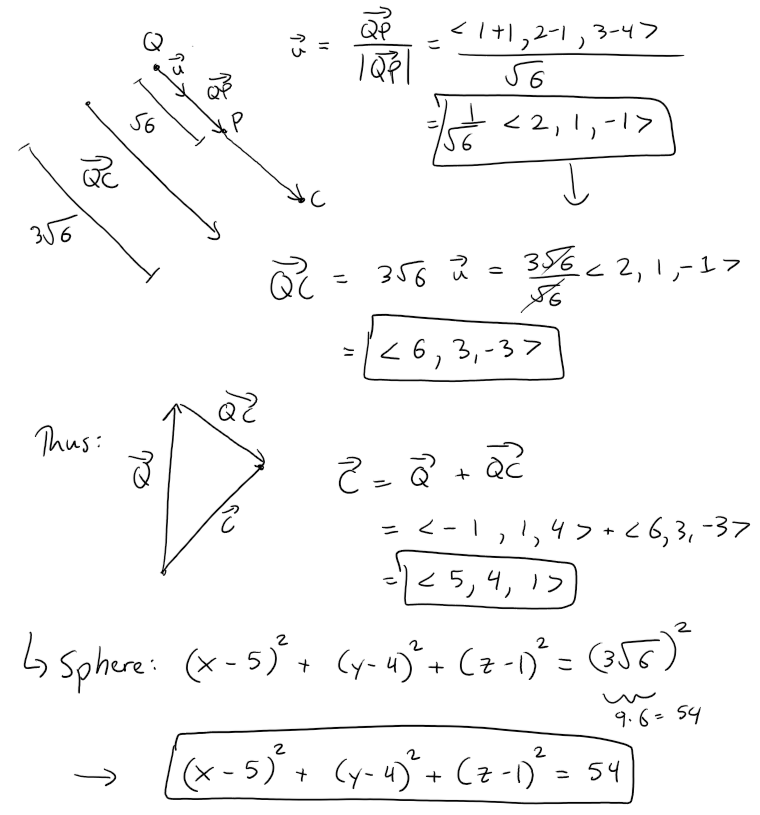 Q
u⃗
QP⃗
√6
P
QC⃗
C
3√6
u⃗ = QP⃗ / |QP⃗| = < 1+1, 2-1, 3-4 > / √6
= 1/√6 < 2, 1, -1 >
QC⃗ = 3√6 u⃗ = 3√6/√6 < 2, 1, -1 >
= < 6, 3, -3 >
Thus:
Q⃗
QC⃗
C⃗
C⃗ = Q⃗ + QC⃗
= < -1, 1, 4 > + < 6, 3, -3 >
= < 5, 4, 1 >
↳ Sphere: (x - 5)² + (y - 4)² + (z - 1)² = (3√6)²
9·6 = 54
→ (x - 5)² + (y - 4)² + (z - 1)² = 54